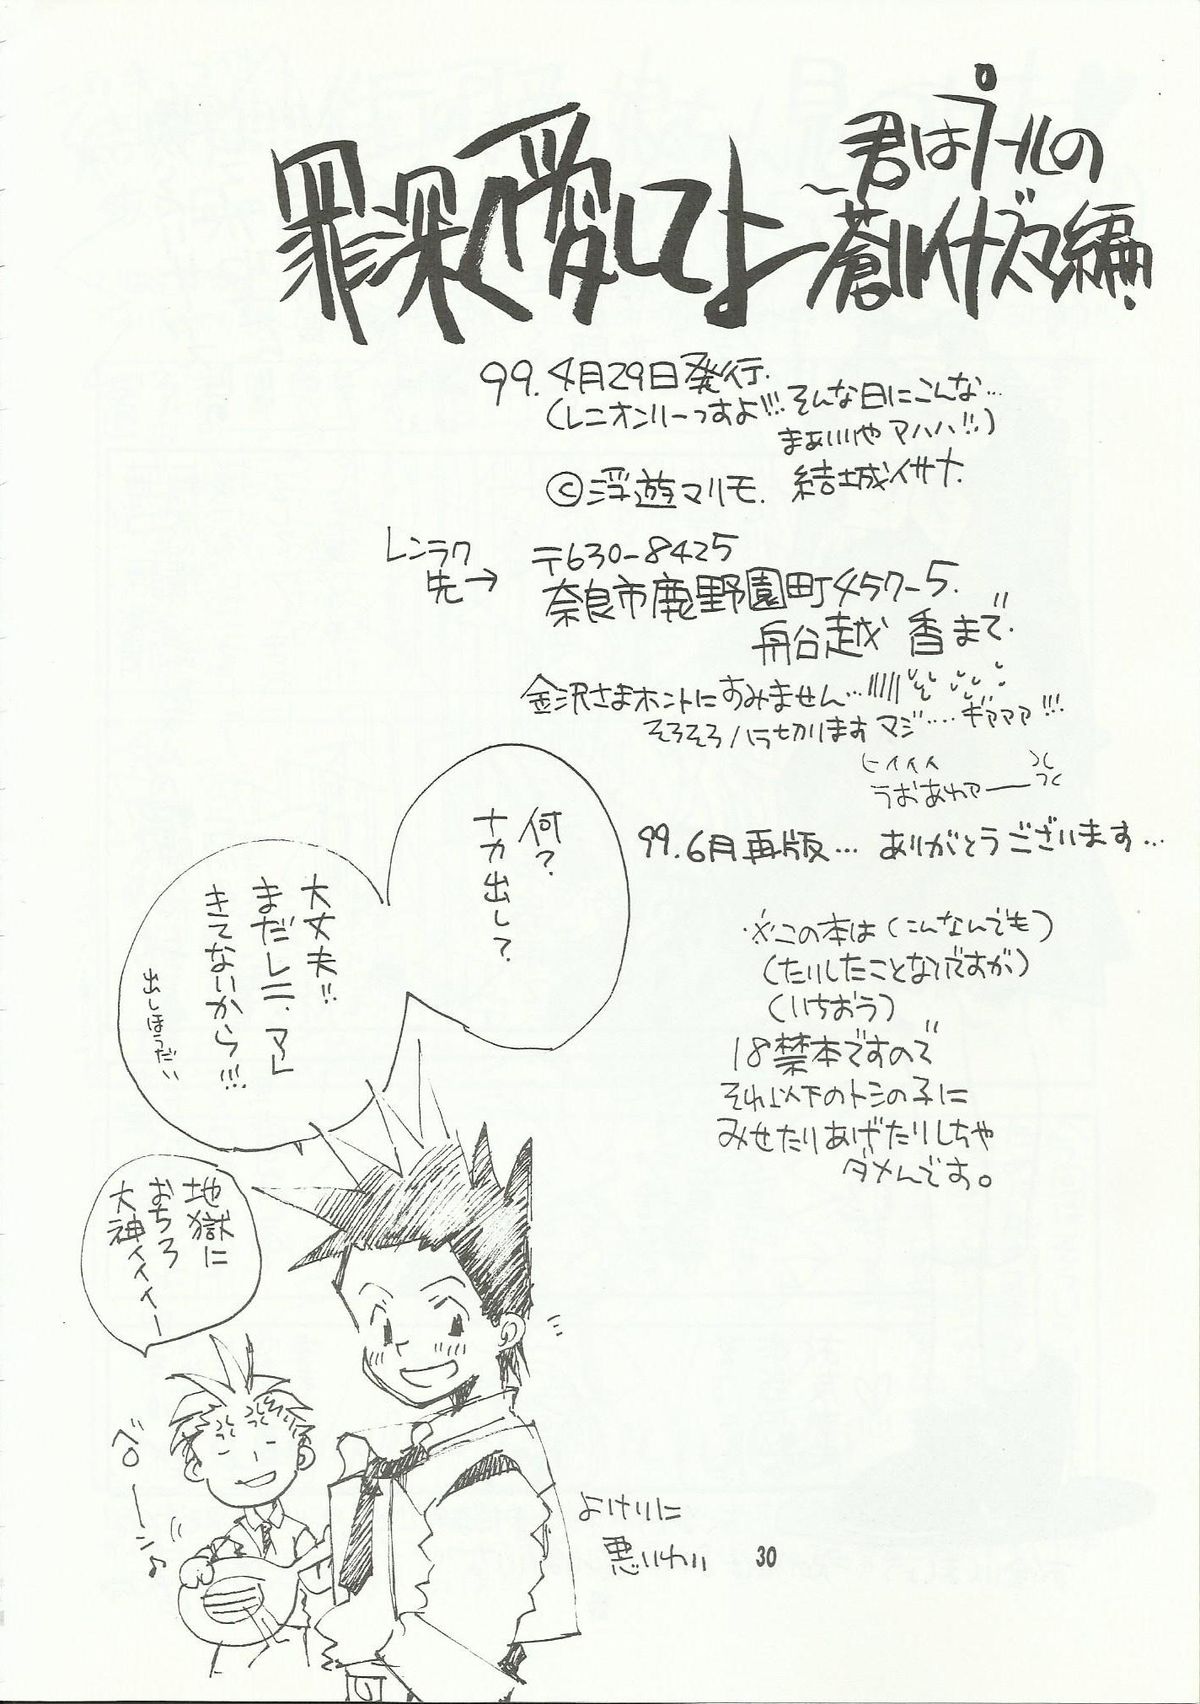 罪深く愛してよ
君はプールの
〜蒼いイナズマ編
99.4月29日発行.
(レニオンリーっすよ!!! そんな日にこんな…
まぁいいや アハハ!!)
©浮遊マリモ. 結城イサナ.
レンラク先→
〒630-8425
奈良市鹿野園町457-5.
舟谷越 香まで.
金沢さまホントにすみません…
そろそろハラ切りますマジ… ギャアアア!!!
ヒィィィ
うおあわァー
99.6月再版… ありがとうございます…
※この本は(こんなんでも)
(たいしたことないですが)
(いちおう)
18禁本ですので
それ以下のトシの子に
みせたりあげたりしちゃ
ダメんです。
地獄に
おちろ
大神ィィィー
べローン♪
よけいに
悪いわい
30